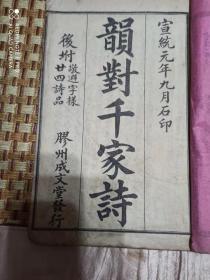 宣統元年九月石印
韻對千家詩
後坿敬避字樣廿四詩品
膠州成文堂發行